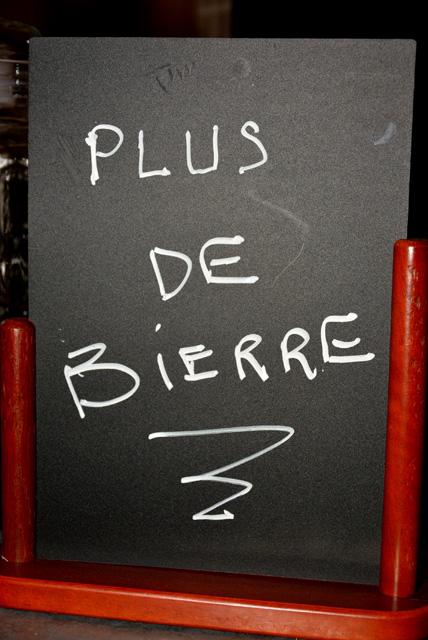 PLUS
DE
BiERRE